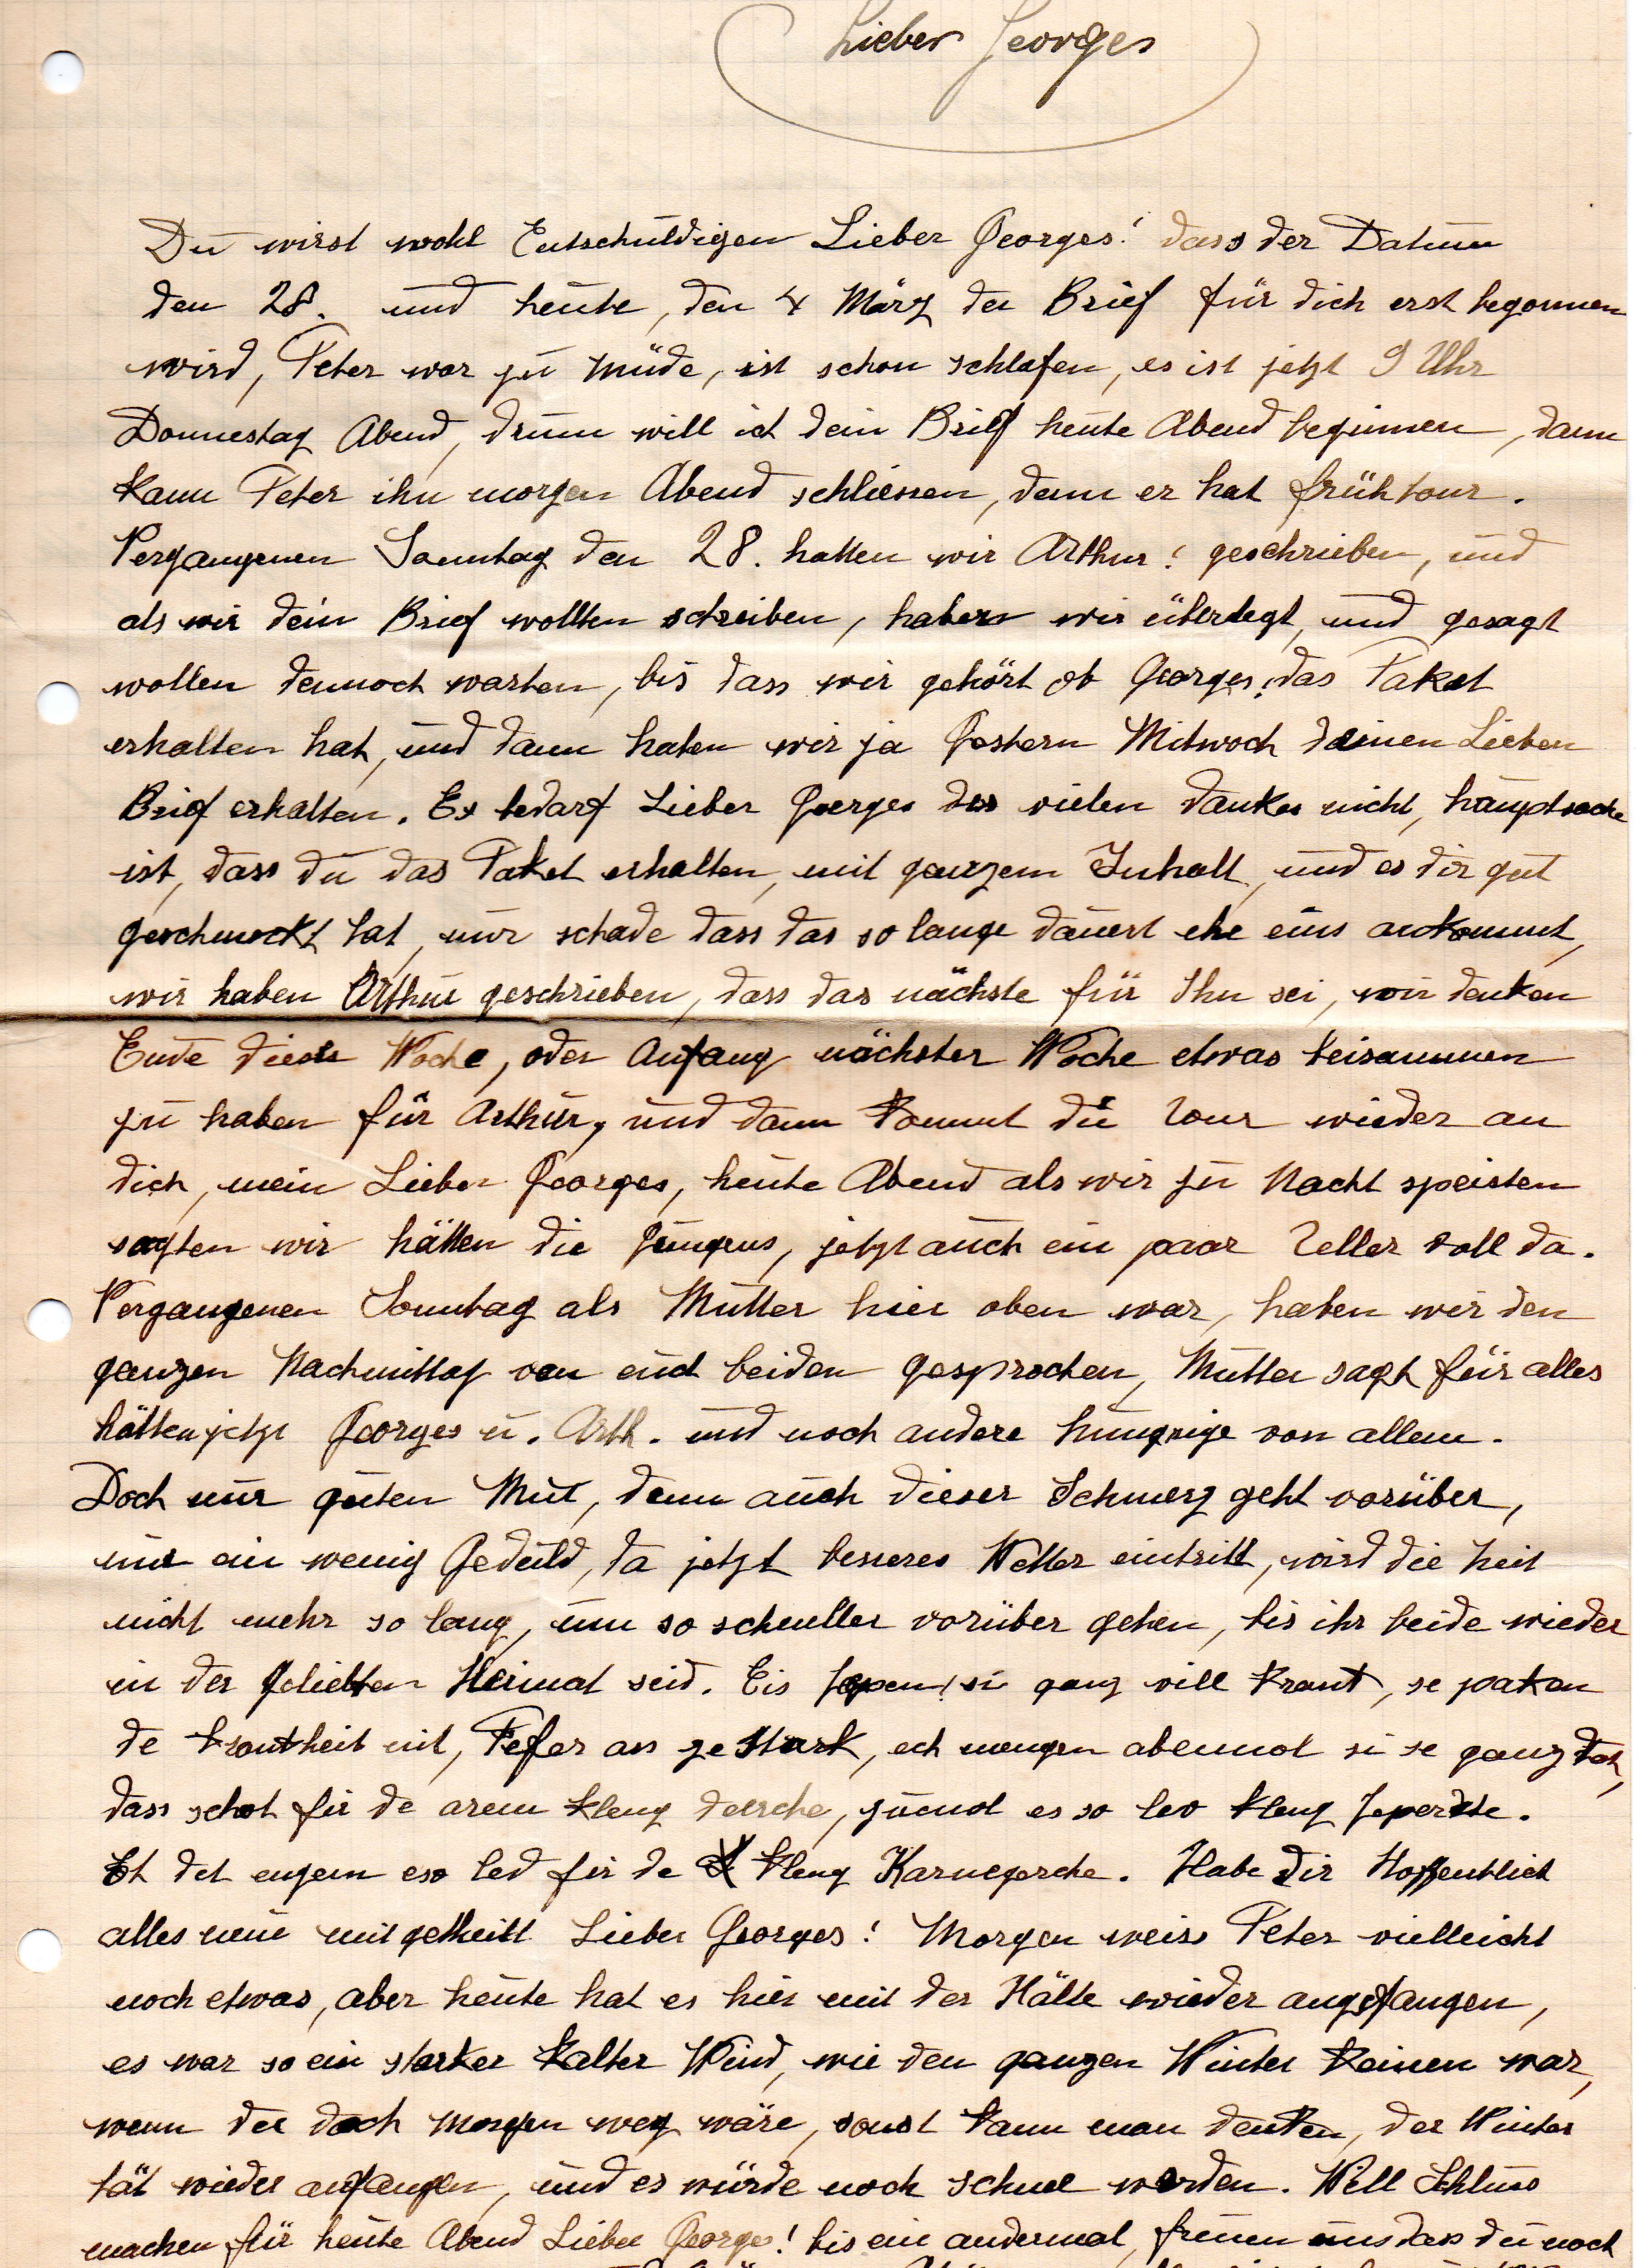 Lieber Georges
Du wirst wohl Entschuldigen Lieber Georges! dass der Datum
den 28. und heute, den 4 März der Brief für dich erst begonnen
wird, Peter war zu müde, ist schon schlafen, es ist jetzt 9 Uhr
Donnestag Abend, drum will ich dein Brief heute Abend beginnen, dann
kann Peter ihn morgen Abend schliessen, denn er hat frühtour.
Vergangenen Sonntag den 28. hatten wir Arthur! geschrieben, und
als wir dein Brief wollten schreiben, haben wir überlegt, und gesagt
wollen dennoch warten, bis dass wir gehört ob Georges! das Paket
erhalten hat, und dann haben wir ja Gestern Mitwoch deinen Lieben
Brief erhalten. Es bedarf Lieber Goerges des vielen dankes nicht, hauptsache
ist, dass du das Paket erhalten, mit ganzem Inhalt, und es dir gut
geschmeckt hat, nur schade dass das so lange dauert ehe eins ankommt,
wir haben Arthur geschrieben, dass das nächste für Ihn sei, wir denken
Ende diese Woche, oder Anfang nächster Woche etwas beisammen
zu haben für Arthur, und dann kommt die tour wieder an
dich, mein Lieber Georges, heute Abend als wir zu Nacht speisten
sagten wir hätten die Jungens, jetzt auch ein paar Teller voll da.
Vergangenen Sonntag als Mutter hier oben war, haben wir den
ganzen Nachmittag von euch beiden gesprochen, Mutter sagt für alles
hätten jetzt Georges u. Arth. und noch andere hungrige von allem.
Doch nur guten Mut, denn auch dieser Schmerz geht vorüber,
nur ein wenig Geduld, da jetzt besseres Wetter eintritt, wird die Zeit
nicht mehr so lang, um so schneller vorüber gehen, bis ihr beide wieder
in der Geliebten Heimat seid. Eis si ganz vill krank, se paken
de krankheit nit, Fefer ass ze stark, ech mengen abennot si se ganz dot,
dass schot fir de arem kleng deerche, zumol es so lev kleng
Et det engem eso led fir de kleng Karnegerche. Habe dir Hoffentlich
alles neue mitgetheilt Lieber Georges! Morgen weiss Peter vielleicht
noch etwas, aber heute hat es hier mit der Kälte wieder angefangen,
es war so ein starker kalter Wind, wie den ganzen Winter keinen war,
wenn der doch Morgen weg wäre, sonst kann man denken, der Winter
tät wieder anfangen, und es würde noch schnee werden. Will Schluss
machen für heute Abend Lieber Georges! bis ein andermal, freuen uns dass du noch